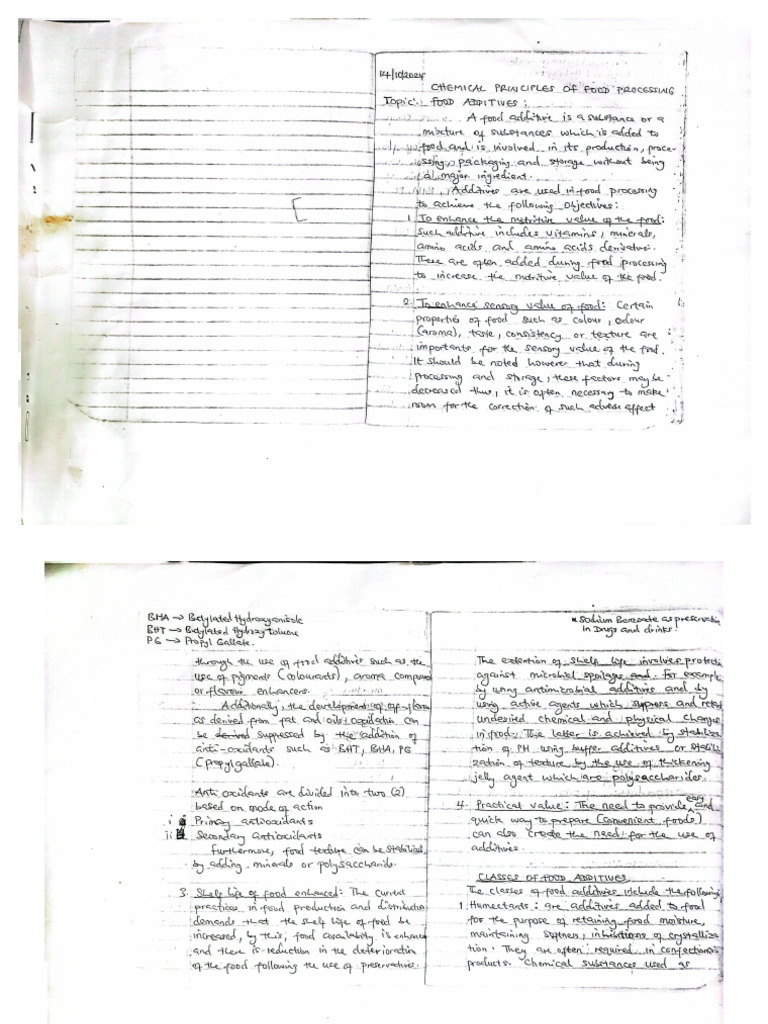 14/10/2024
CHEMICAL PRINCIPLES OF FOOD PROCESSING
Topic: FOOD ADDITIVES:
A food additive is a substance or a
mixture of substances which is added to
food and is involved in its production, proce-
ssing, packaging and storage without being
a major ingredient.
Additives are used in food processing
to achieve the following objectives:
1. To enhance the nutritive value of the food:
such additive includes vitamins, minerals,
amino acids and amino acids derivative.
These are often added during food processing
to increase the nutritive value of the food.
2. To enhance sensory value of food: Certain
properties of food such as colour, odour
(aroma), taste, consistency or texture are
importants for the sensory value of the food.
It should be noted however that during
processing and storage, these factors may be
decreased thus, it is often necessary to make
room for the correction of such adverse effect
BHA → Butylated Hydroxyanisole
BHT → Butylated Hydroxy Toluene
PG → Propyl Gallate.
through the use of food additives such as the
use of pigments (colourants), aroma compound
or flavour enhancers.
Additionally, the development of off-flavour
as derived from fat and oils oxidation can
be derived suppressed by the addition of
anti-oxidants such as BHT, BHA, PG
(propyl gallate).
Anti oxidants are divided into two (2)
based on mode of action
i Primary antioxidants
ii Secondary antioxidants
Furthermore, food texture can be stabilized
by adding minerals or polysaccharide.
3. Shelf life of food enhanced: The current
practices in food production and distribution
demands that the shelf life of food be
increased, by this, food availability is enhanced
and there is reduction in the deterioration
of the food following the use of preservatives.
* Sodium Benzoate as preservative
in Drugs and drinks!
The extention of shelf life involves protection
against microbial spoilage and. For example
by using antimicrobial additives and by
using active agents which suppress and retard
undesired chemical and physical changes
in food. The latter is achieved by stabiliza
tion of PH using buffer additives or stabili
zation of texture by the use of thickening
jelly agent which are polysaccharides.
4. Practical value: The need to provide easy and
quick way to prepare (convenient foods)
can also create the need for the use of
additives.
CLASSES OF FOOD ADDITIVES
The classes of food additives include the following
1 Humectants: are additives added to food
for the purpose of retaining food moisture,
maintaining softness, inhibitions of crystalliza
tion. They are often required in confectionary
products. Chemical substances used as